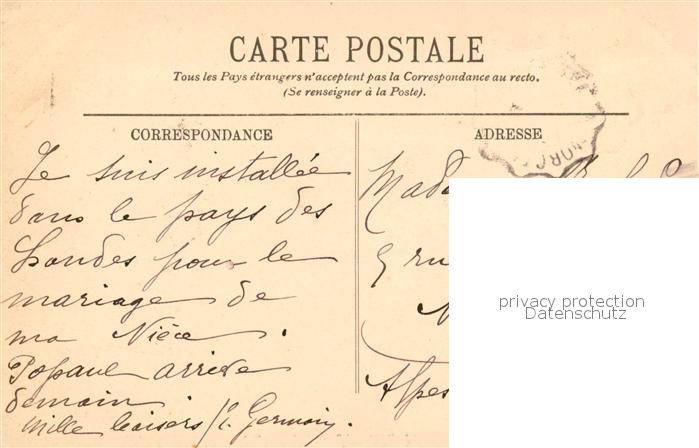 CARTE POSTALE
Tous les Pays étrangers n'acceptent pas la Correspondance au recto.
(Se renseigner à la Poste).
CORRESPONDANCE
Je suis installée
dans le pays des
Landes pour le
mariage de
ma Nièce.
Popaul arrive
demain.
Mille baisers
Germain.
ADRESSE
5 ru
N
Alpes
privacy protection
Datenschutz